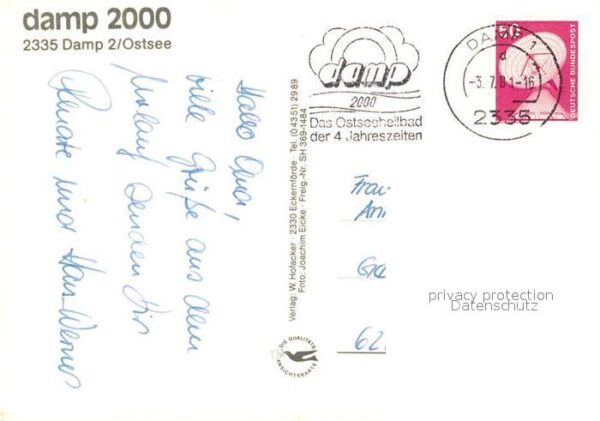 damp 2000
2335 Damp 2/Ostsee
Hallo Oma,
viele Grüße aus dem
Urlaub senden Dir
Renate und Hans-Werner
Verlag: W. Hofacker · 2330 Eckernförde · Tel. (04351) 2989
Foto: Joachim Eicke · Freig.-Nr. SH 369-1484
damp
2000
Das Ostseeheilbad
der 4 Jahreszeiten
DAMP 1
d
-3.7.81-16
2335
60
DEUTSCHE BUNDESPOST
Frau
DIE QUALITÄTS
ANSICHTSKARTE
62
privacy protection
Datenschutz